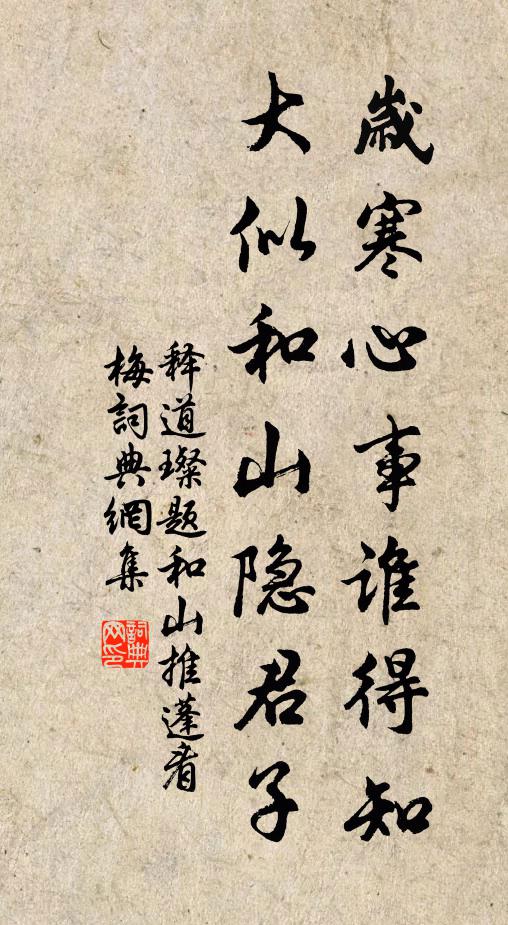 歲寒心事誰得知
大似和山隐君子
释道璨题和山推蓬看
梅詞典網集
詞典网印